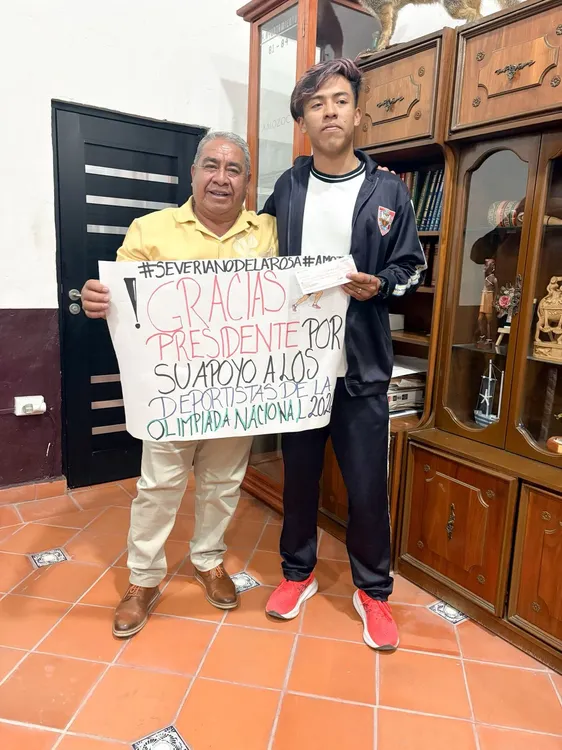 #SEVERIANODELAROSA#AMOZ
¡GRACIAS
PRESIDENTE POR
SU APOYO A LOS
DEPORTISTAS DE LA
OLIMPIADA NACIONAL 202